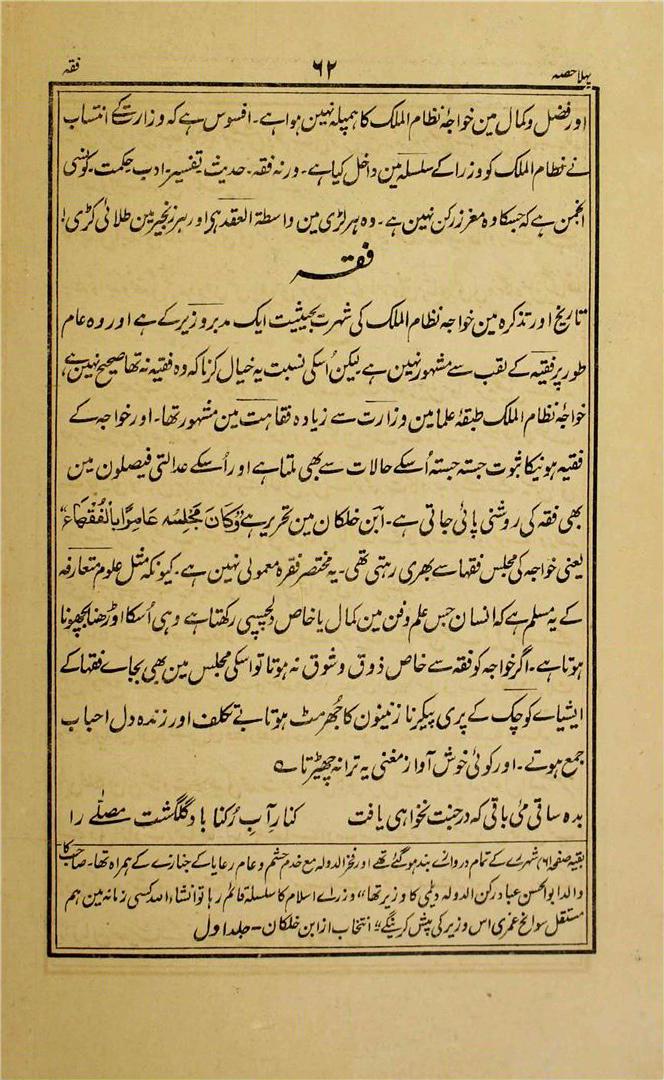 پہلا حصہ ۶۲ فقہ
اور فضل و کمال مین خواجۂ نظام الملک کا ہمپلہ نہین ہوا ہے۔ افسوس ہے کہ وزارت کے انتساب
نے نظام الملک کو وزرا کے سلسلہ مین داخل کیا ہے۔ ورنہ فقہ۔ حدیث۔ تفسیر۔ ادب۔ حکمت۔ کونسی
انجمن ہے کہ جسکا وہ معزز رکن نہین ہے۔ وہ ہر لڑی مین واسطۃ العقد ہی اور ہر زنجیر مین طلائی کڑی!
فقہ
تاریخ اور تذکرہ مین خواجہ نظام الملک کی شہرت بحیثیت ایک مدبر وزیر کے ہے اور وہ عام
طور پر فقیہ کے لقب سے مشہور نہین ہے لیکن اُسکی نسبت یہ خیال کرنا کہ وہ فقیہ نہ تھا صحیح نہین ہے،
خواجۂ نظام الملک طبقۂ علما مین وزارت سے زیادہ فقاہت مین مشہور تھا۔ اور خواجہ کے
فقیہ ہونیکا ثبوت جستہ جستہ اُسکے حالات سے بھی ملتا ہے اور اُسکے عدالتی فیصلون مین
بھی فقہ کی روشنی پائی جاتی ہے۔ ابن خلکان مین تحریر ہے "وَکَانَ مَجْلِسُہ عَامِرًا بِالْفُقَھَاءِ"
یعنی خواجہ کی مجلس فقہا سے بھری رہتی تھی۔ یہ مختصر فقرہ معمولی نہین ہے۔ کیونکہ مثل علوم متعارفہ
کے یہ مسلم ہے کہ انسان جس علم و فن مین کمال یا خاص دلچسپی رکھتا ہے وہی اُسکا اوڑھنا بچھونا
ہوتا ہے۔ اگر خواجہ کو فقہ سے خاص ذوق و شوق نہ ہوتا تو اسکی مجلس مین بھی بجاے فقہا کے
ایشیاے کوچک کے پری پیکر نازنینون کا جُھرمٹ ہوتا بے تکلف اور زندہ دل احباب
جمع ہوتے۔ اور کوئی خوش آواز مغنی یہ ترانہ چھیڑتا ؎
بدہ ساقی مَی باقی کہ در جنت نخواہی یافت کنارِ آبِ رُکنا باد و گلگشت مصلّے را
بقیہ صفحہ (۶۱) شہر رے کے تمام دروازے بند ہو گئے تھے اور فخر الدولہ مع خدم حشم و عام رعایا کے جنازے کے ہمراہ تھا۔ صاحب کا
والد ابو الحسن عباد رکن الدولہ دیلمی کا وزیر تھا" وزراے اسلام کا سلسلہ قائم رہا تو انشاء اللہ کسی زمانہ مین ہم
مستقل سوانح عمری اس وزیر کی پیش کرینگے" انتخاب از ابن خلکان – جلد اول